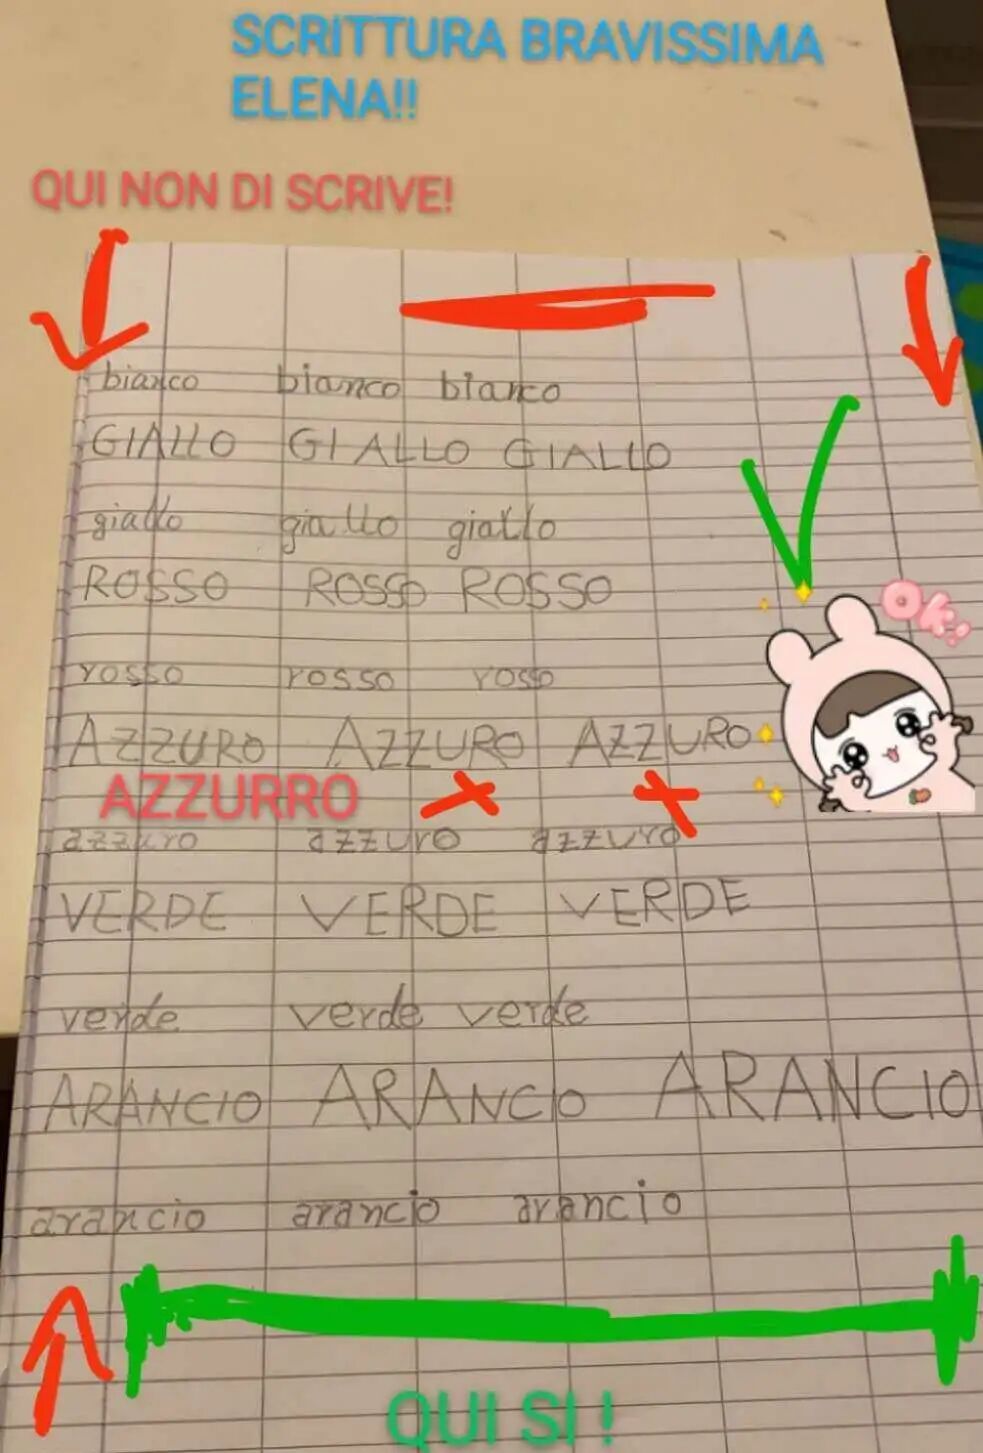 SCRITTURA BRAVISSIMA
ELENA!!
QUI NON DI SCRIVE!
bianco bianco bianco
GIALLO GIALLO GIALLO
giallo giallo giallo
ROSSO ROSSO ROSSO
rosso rosso rosso
AZZURO AZZURO AZZURO
AZZURRO
azzuro azzuro azzuro
VERDE VERDE VERDE
verde verde verde
ARANCIO ARANCIO ARANCIO
arancio arancio arancio
QUI SI !
OK!!